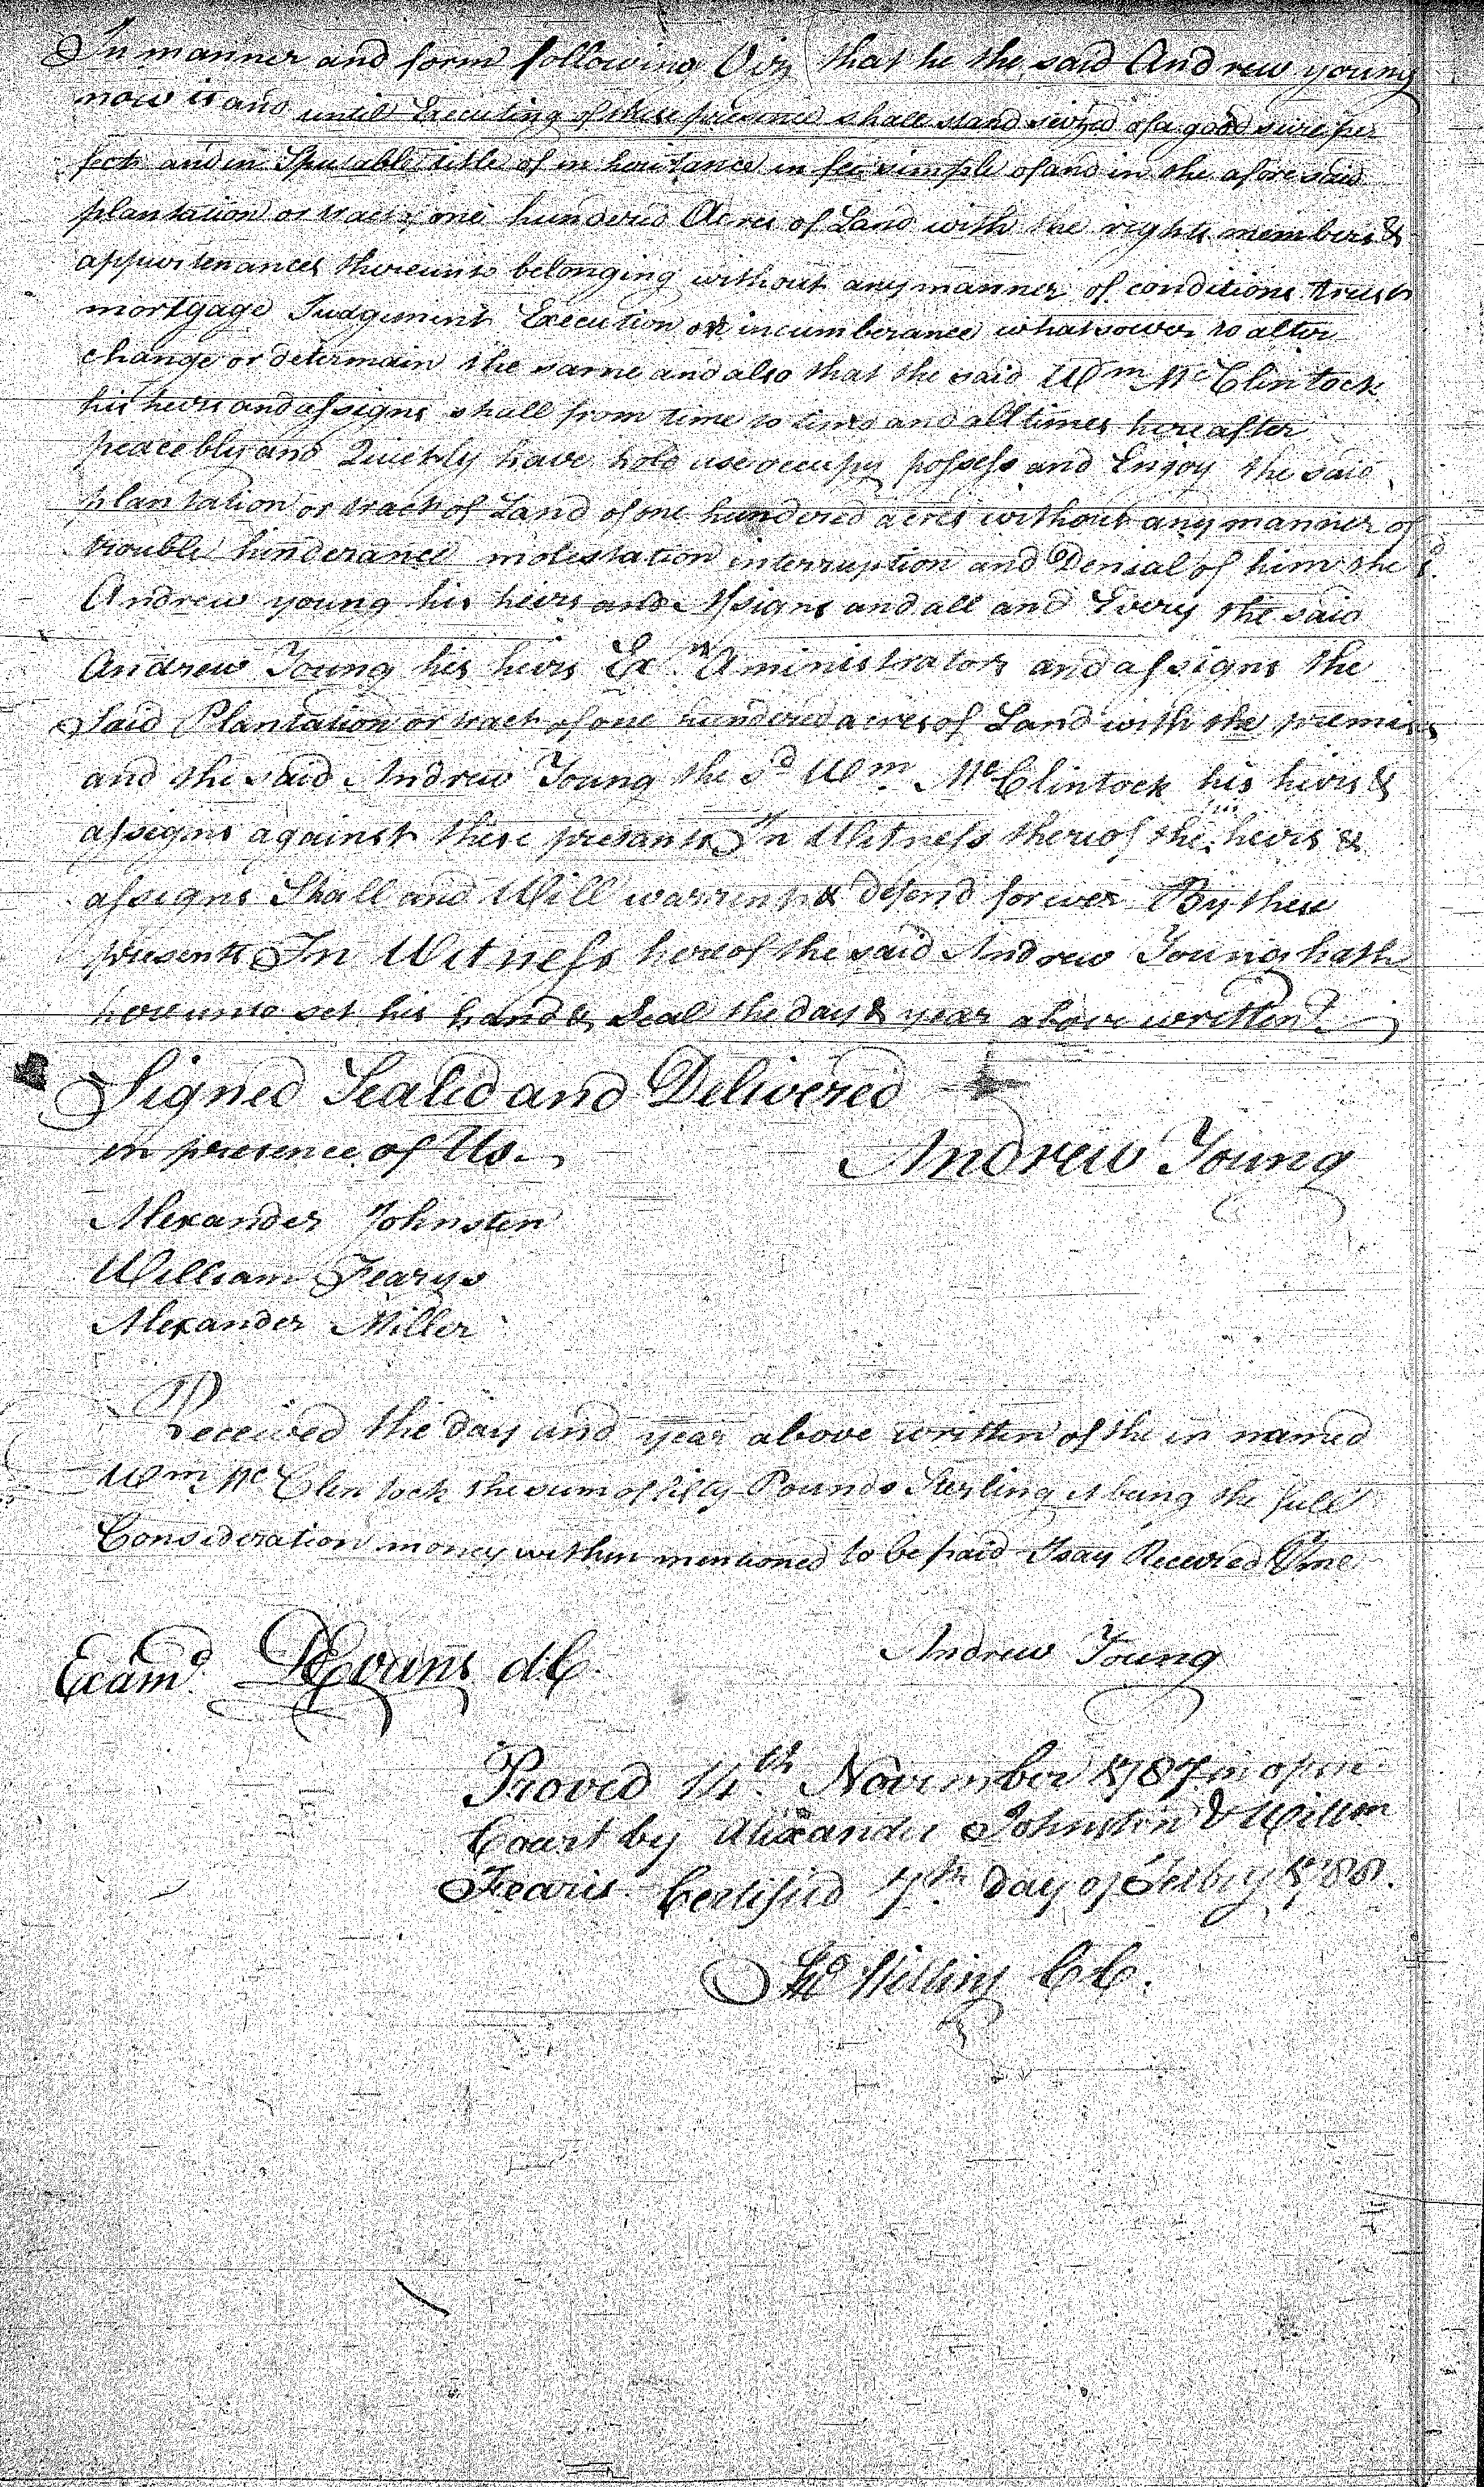 In manner and form following Viz that he the said Andrew young
now is and until Executing of these presence shall stand seized of a good sure per
fect and in Sputable title of in heritance in fee simple of and in the afore said
plantation or tract of one hundered Acres of Land with the rights members &
appurtenances thereunto belonging without any manner of conditions trust
mortgage Judgement Execution or incumberance whatsoever to alter
change or determain the same and also that the said Wm McClintock
his heirs and assigns shall from time to times and all times here after
peacebly and Quickly have hold use occupy possess and Enjoy the said
plantation or tract of Land of one hundered acres without any manner of
trouble hinderance molestation interruption and Denial of him the sd
Andrew young his heirs and Assigns and all and Every the said
Andrew Young his heirs Exrs Aministrators and assigns the
Said Plantation or tract of one hundered acres of Land with the premises
and the said Andrew Young the sd Wm McClintock his heirs &
assigns against these presants In Witness thereof the his heirs &
assigns Shall and Will warrent & defend forever By these
presents In Witness hereof the said Andrew Young hath
hereunto set his hand & Seal the day & year above written
Signed Sealed and Delivered
in presence of Us
Andrew Young
Alexander Johnston
William Fearys
Alexander Miller
Received the day and year above written of the in named
Wm McClentock the sum of fifty Pounds Sterling it being the full
Consideration money within mentioned to be paid I say Received P me
Andrew Young
Examd D Evans d.C.
Proved 14th November 1787 in open
Court by Alexander Johnston & Willm
Fearis Certifyed 7th day of Feby 1788.
C.C.